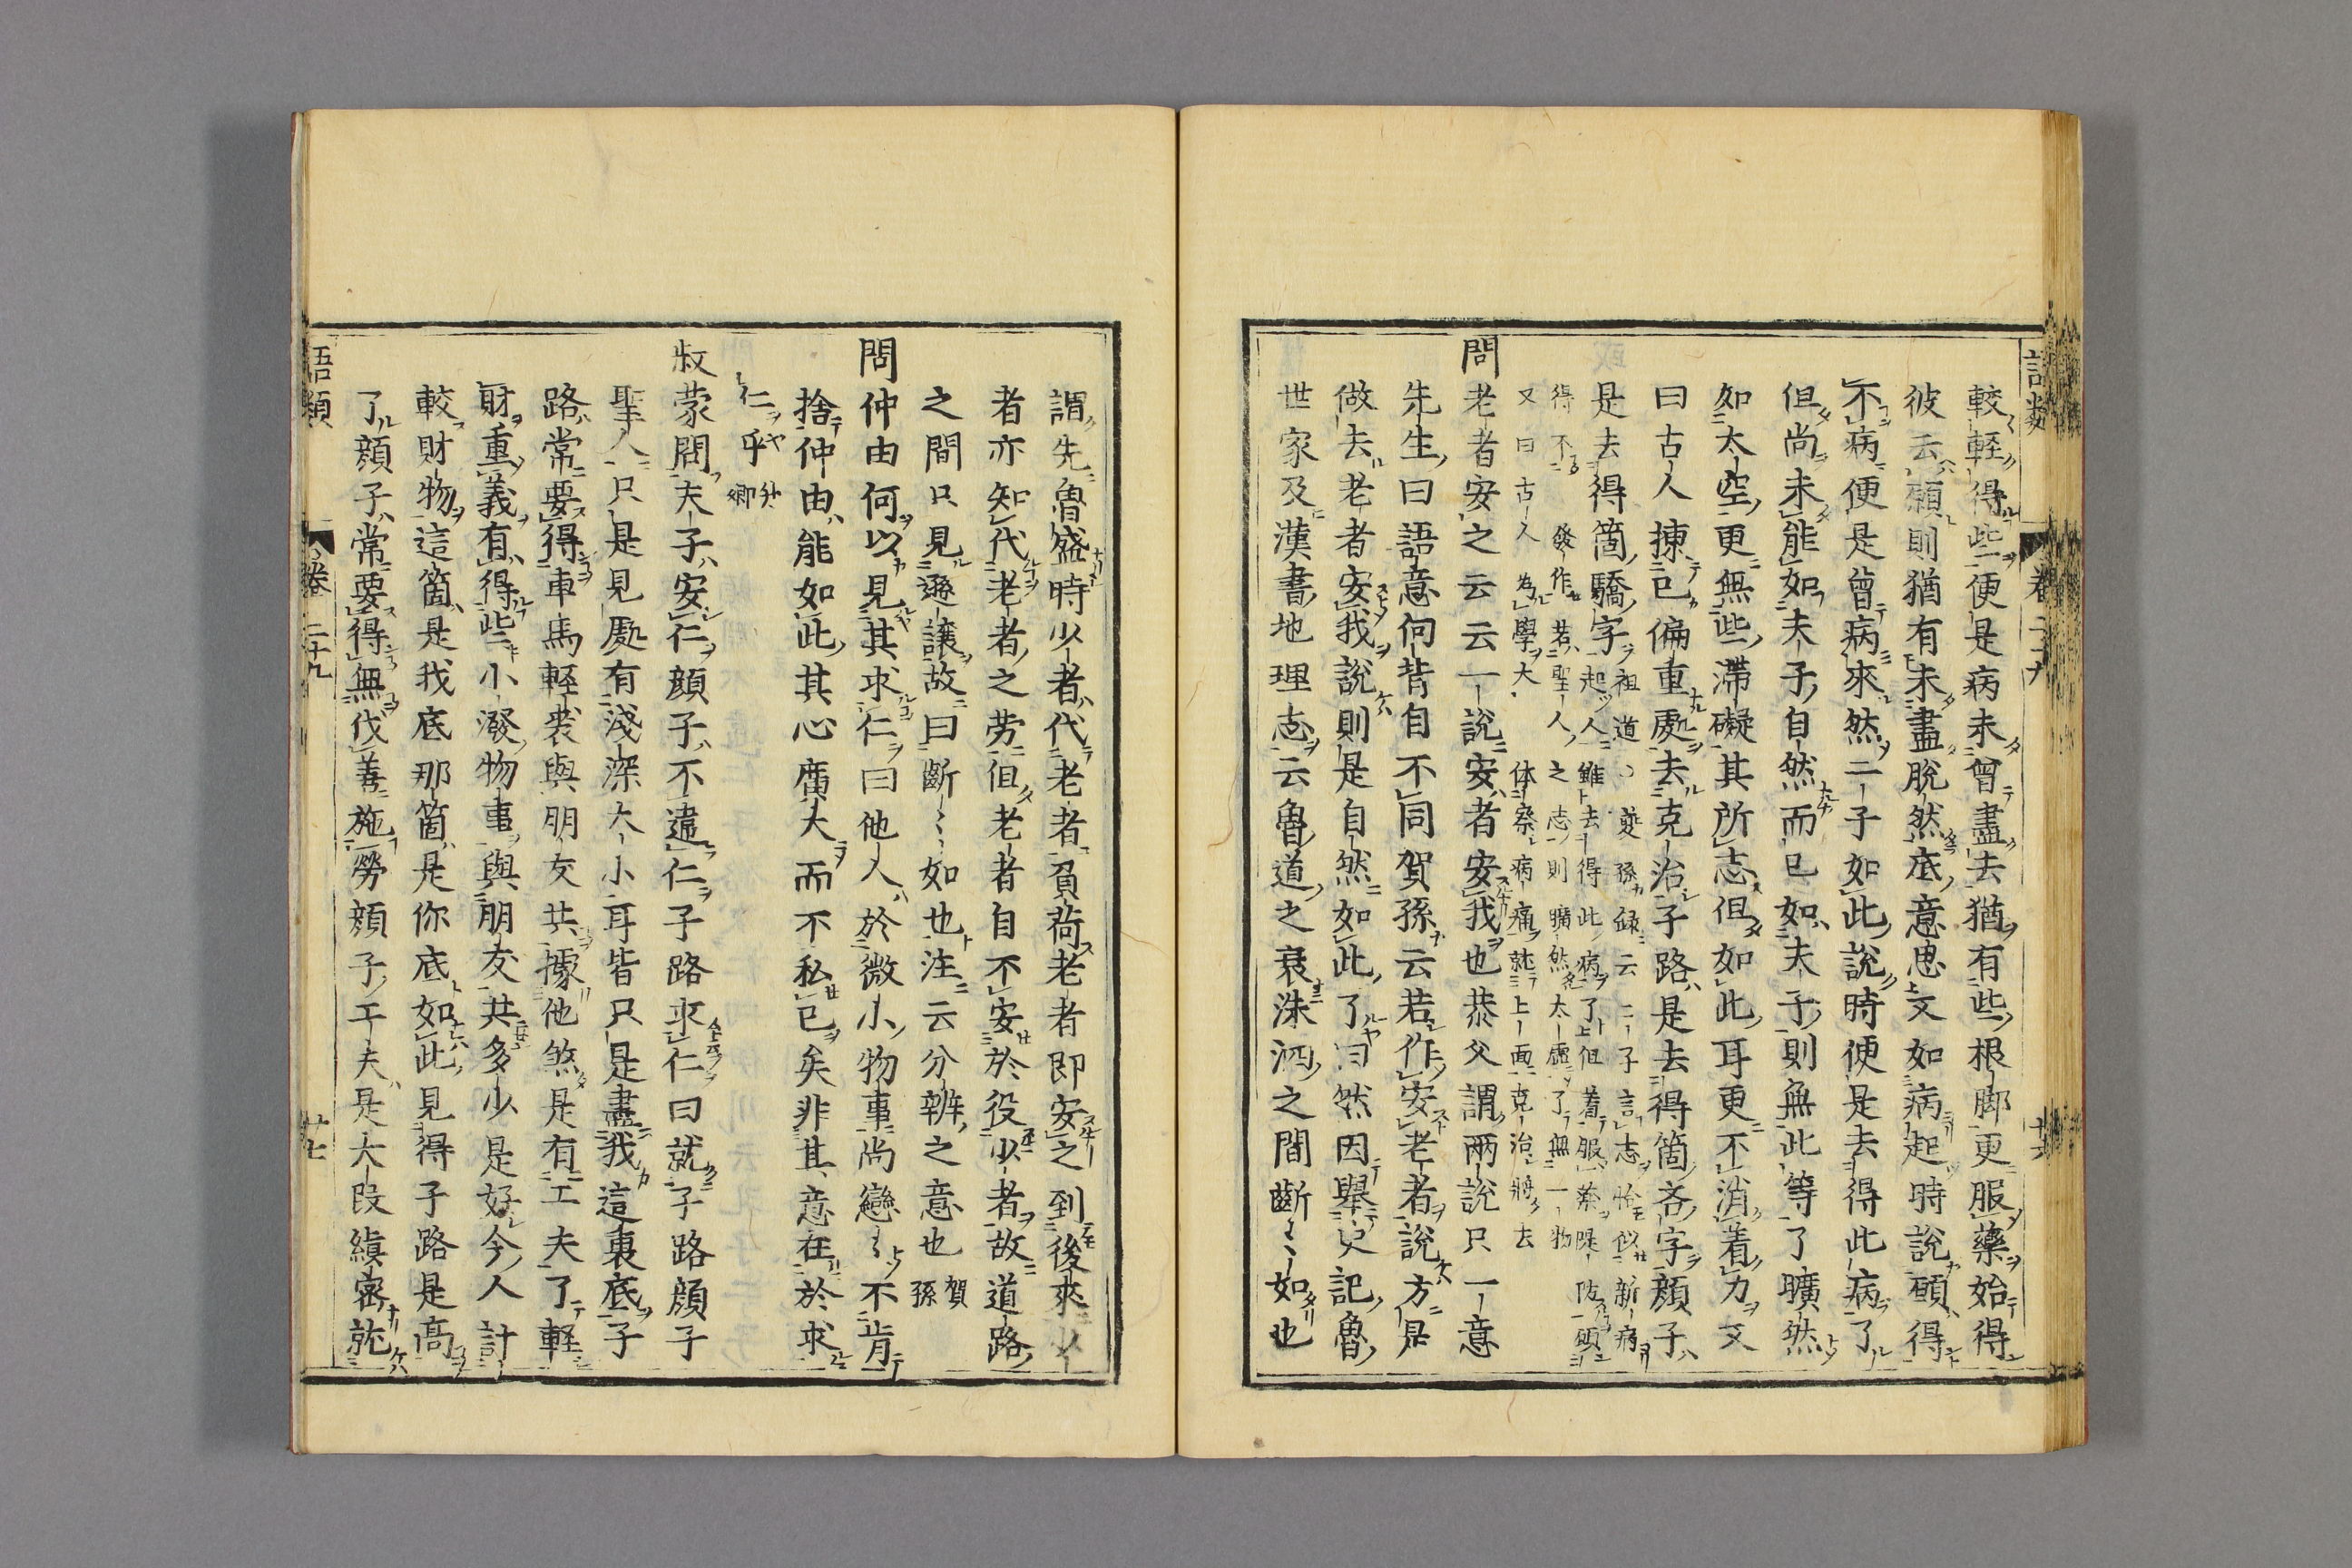 語類　卷二十九　廿六
較輕得些便是病未曽盡去猶有些根脚更服藥始得
彼云願則猶有未盡脫然底意思又如病起時說願得
不病便是曽病來然二子如此說時便是去得此病了
但尚未能如夫子自然而已如夫子則無此等了曠然
如太空更無些滯礙其所志但如此耳更不消着力又
曰古人揀己偏重處去克治子路是去得箇吝字顔子
是去得箇驕字祖道○夔孫録云二子言志恰似新病
起人雖去得此病了但着服藥隄防願
得不發作若聖人之志則曠然太虛了無一物
又曰古人為學大体察病痛就上面克治將去
問老者安之云云一說安者安我也恭父謂兩說只一意
先生曰語意向背自不同賀孫云若作安老者說方是
做去老者安我說則是自然如此了曰然因舉史記魯
世家及漢書地理志云魯道之衰洙泗之間斷〻如也
謂先魯盛時少者代老者負荷老者即安之到後來少
者亦知代老者之労但老者自不安於役少者故道路
之間只見遜讓故曰斷〻如也注云分辨之意也賀孫
問仲由何以見其求仁曰他人於微小物事尚戀〻不肯
捨仲由能如此其心廣大而不私己矣非其意在於求
仁乎升卿
叔蒙問夫子安仁顔子不違仁子路求仁曰就子路顔子
聖人只是見處有淺深大小耳皆只是盡我這裏底子
路常要得車馬輕裘與朋友共據他煞是有工夫了輕
財重義有得些小潑物事與朋友共多少是好今人計
較財物這箇是我底那箇是你底如此見得子路是髙
了顔子常要得無伐善施勞顔子工夫是大段縝密就
語類　卷二十九　廿七